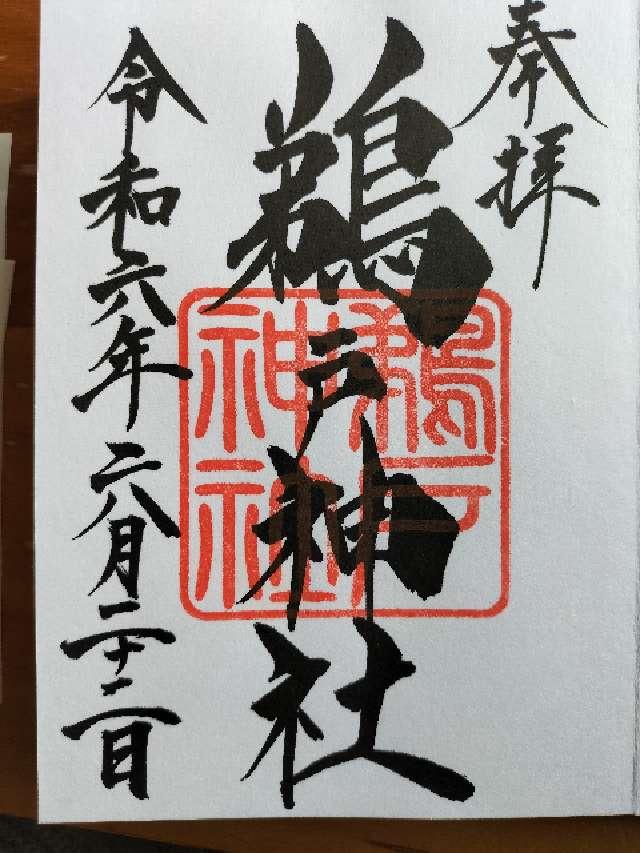 奉拝
鵜戸神社
鵜戸神社
令和六年六月二十二日